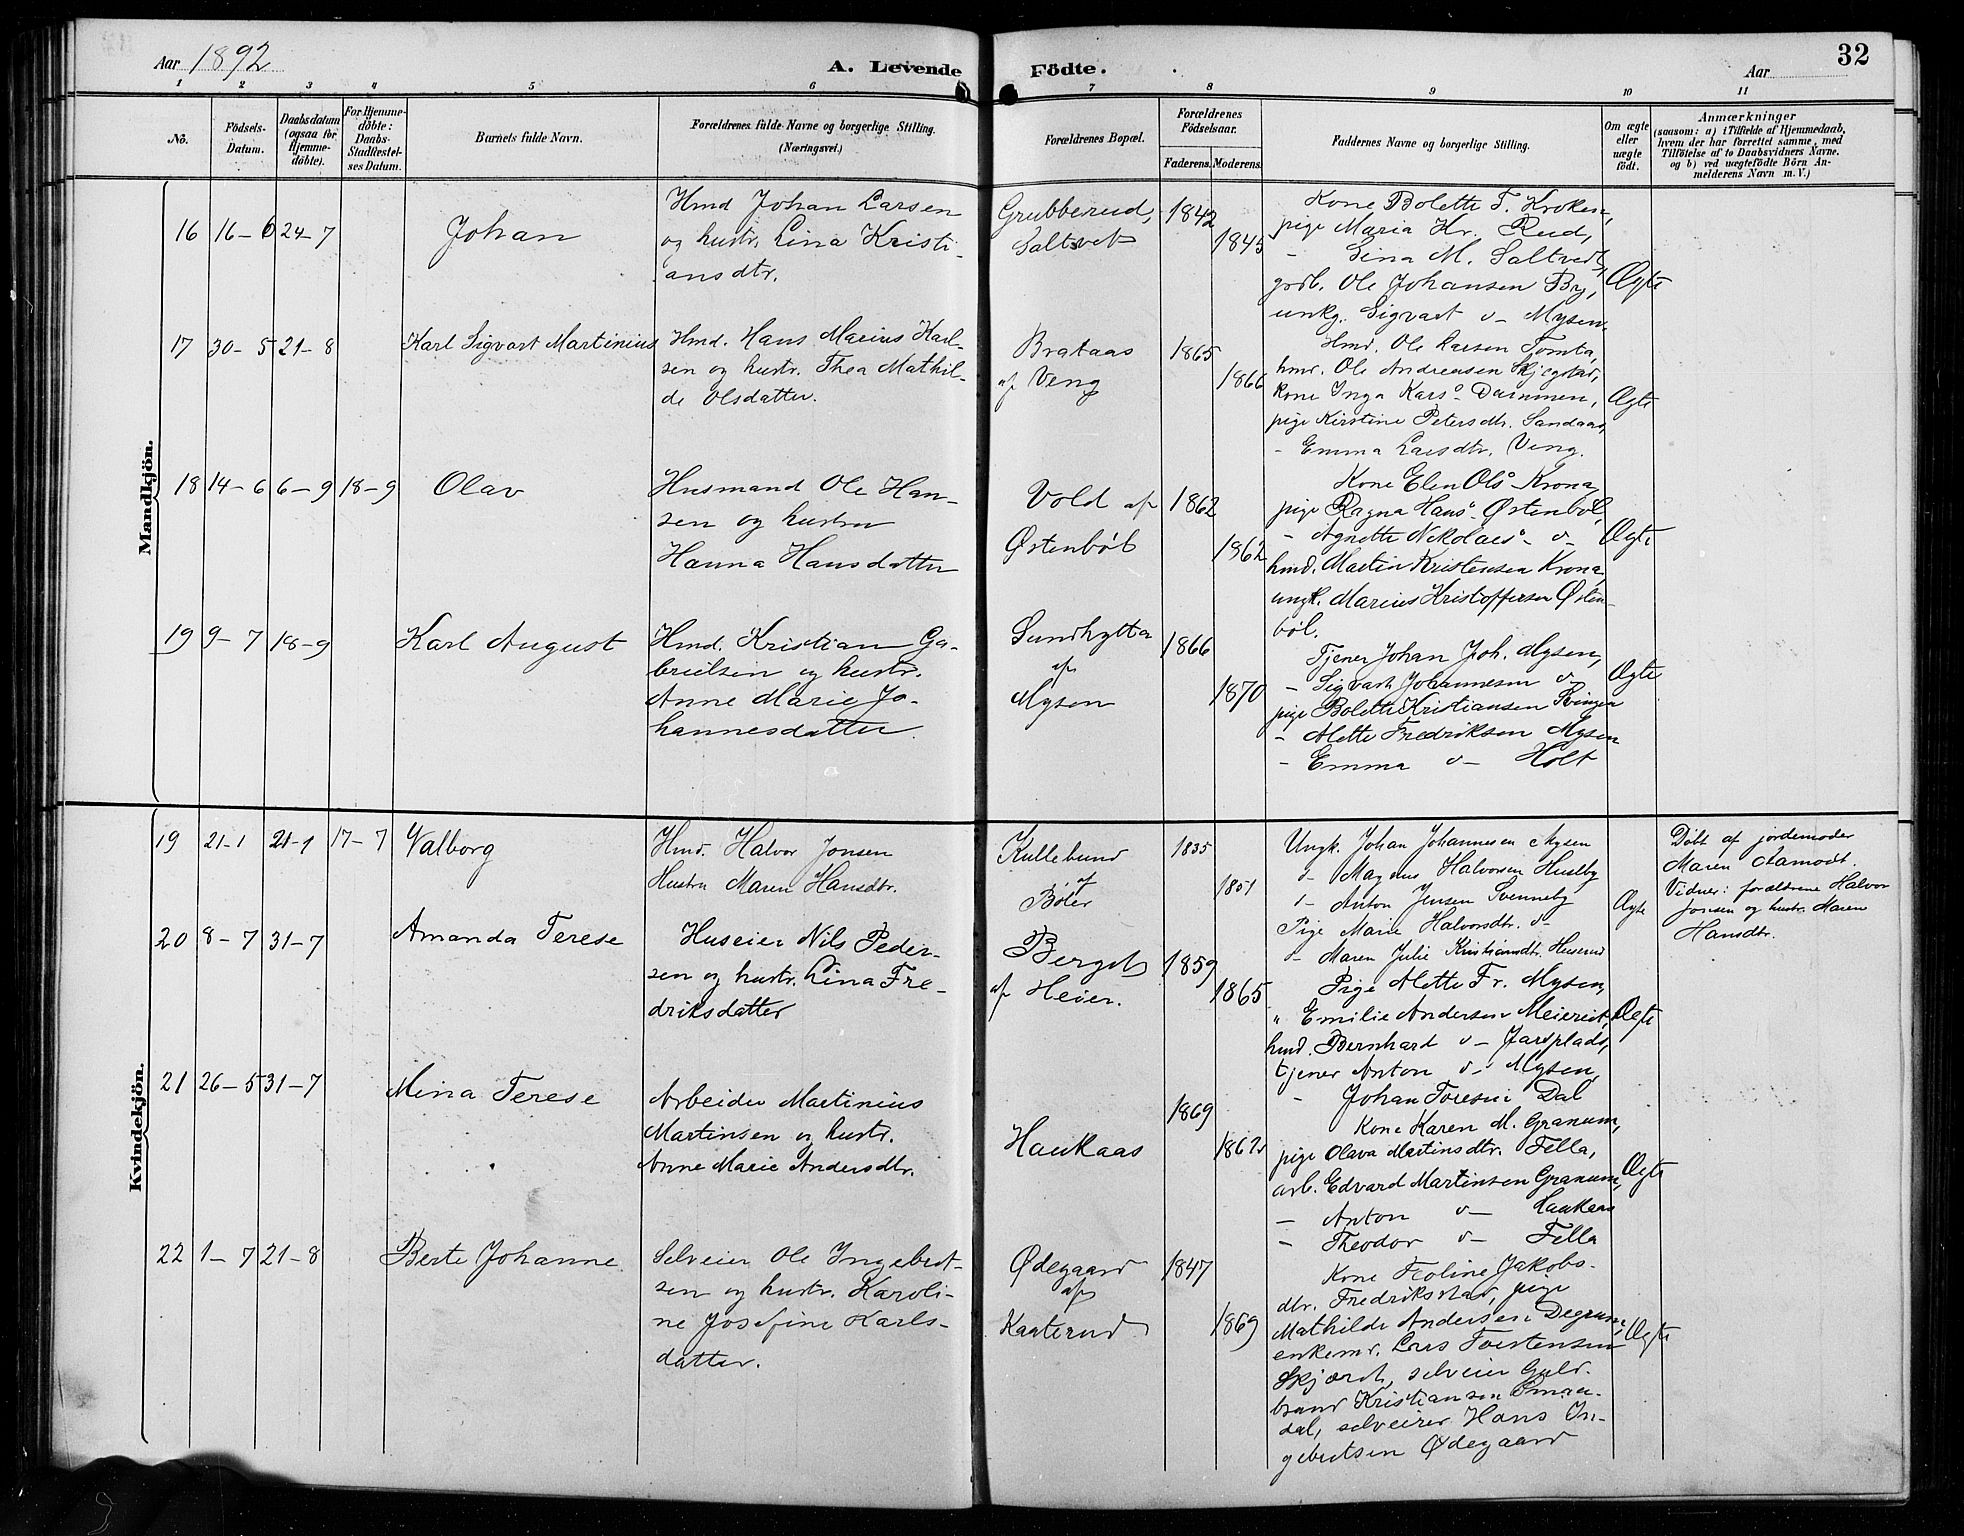 Aar 1892
A. Levende Födte.
Aar
32
1 2 3 4 5 6 7 8 9 10 11
No.
Födsels-Datum.
Daabsdatum (ogsaa for Hjemmedöbte).
For Hjemmedöbte: Daabs-Stadfæstelses Datum.
Barnets fulde Navn.
Forældrenes fulde Navne og borgerlige Stilling. (Næringsvei.)
Forældrenes Bopæl.
Forældrenes Födselsaar.
Faderens. Moderens.
Faddernes Navne og borgerlige Stilling.
Om ægte eller uægte födt.
Anmærkninger
(saasom: a) i Tilfælde af Hjemmedaab,
hvem der har forrettet samme, med
Tilföielse af to Daabsvidners Navne.
og b) ved uægtefödte Börn An-
melderens Navn m. V.)
Mandkjön.
16 16-6 24-7 Johan
Hmd Johan Larsen
og hustr. Lina Kristi-
ansdtr.
Grubberud,
Saltvet
1842
1845
Kone Bolette T. Kroken,
pige Maria Hr. Rud,
- Lina M. Saltvedt,
grdb. Ole Johansen By,
unkg. Sigvart d- Mysen.
Ægte
17 30-5 21-8 Karl Sigvart Martinius
Hmd. Hans Marius Karl-
sen og hustr. Thea Mathil-
de Olsdatter.
Brataas
af Veng
1865
1866
Hmd. Ole Larsen Tomta,
hmd. Ole Andreasen Skjegstad,
kone Inga Kars- Dammen,
pige Kirstine Petersdtr. Sandaas,
- Emma Larsdtr. Veng.
Ægte
18 14-6 6-9 18-9 Olav
Husmand Ole Han-
sen og hustru
Hanna Hansdatter
Vold af
Østenbøl
1862
1862
Kone Elen Ols- Krona
pige Ragna Hans- Østenbøl,
- Agnette Nikolaes- d-
hmd. Martin Kristensen Krona,
ungk. Marius Kristoffersen Østen-
bøl.
Ægte
19 9-7 18-9 Karl August
Hmd. Kristian Ga-
brielsen og hustr.
Anne Marie Jo-
hannesdatter.
Sundhytta
af
Mysen
1866
1870
Tjener Johan Joh. Mysen,
- Sigvart Johannesen d-
pige Bolette Kristiansen
- Alette Fredriksen Mysen
- Emma d- Holt
Ægte
Kvindekjön.
19 21-1 21-1 17-7 Valborg
Hmd. Halvor Jonsen
Hustru Maren Hansdtr.
Kullebund
af
Bøler
1835
1851
Ungk. Johan Johannesen Mysen
d- Magnus Halvorsen Huseby
d- Anton Jensen Svenneby
Pige Marie Halvorsdtr. d-
d- Maren Julie Kristiansdtr. Huserud
Ægte
Døbt af jordemoder
Maren Aamodt.
Vidner: forældrene Halvor
Jonsen og hustr. Maren
Hansdtr.
20 8-7 31-7 Amanda Terese
Huseier Nils Peder-
sen og hustr. Lina Fre-
driksdatter
Berget
af Heier.
1859
1865
Pige Alette Fr. Mysen,
" Emilie Andersen Meieriet,
hmd. Bernhard d- Jarsplads,
tjener Anton d- Mysen,
- Johan Toresen Dal
Ægte
21 26-5 31-7 Mina Terese
Arbeider Martinius
Martinsen og hustr.
Anne Marie Andersdtr.
Haukaas
1869
1862
Kone Karen M. Granum,
pige Olava Martinsdtr. Fella,
arb. Edvard Martinsen Granum,
- Anton d- Haukaas
- Theodor d- Fella
Ægte
22 1-7 21-8 Berte Johanne
Selveier Ole Ingebret-
sen og hustr. Karoli-
ne Josefine Karls-
datter.
Ødegaard
af
Kaaterud
1847
1869
Kone Joline Jakobs-
dtr. Fredriksstad, pige
Mathilde Andersen Degrum,
enkemd. Lars Torstensen
Skjærdt, selveier Guld-
brand Kristiansen
dal, selveier Hans In-
gebretsen Ødegaard
Ægte